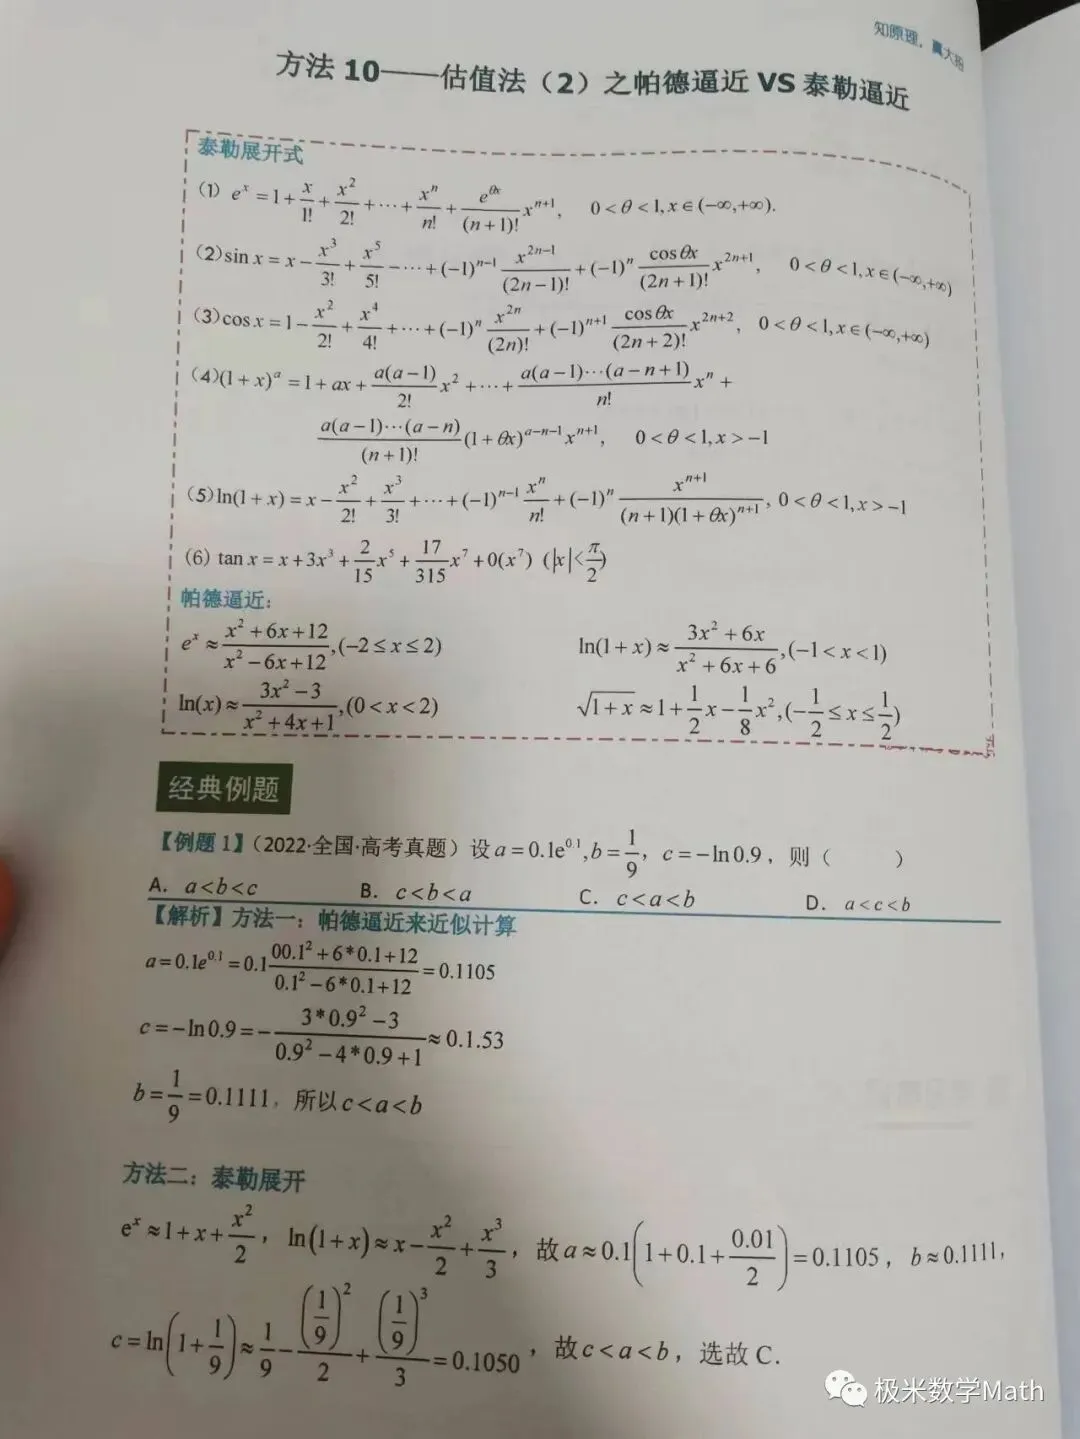 知原理，赢大招
方法 10——估值法（2）之帕德逼近 VS 泰勒逼近
泰勒展开式
（1） e^x = 1 + x/1! + x^2/2! + ⋯ + x^n/n! + e^{θx}/(n+1)! x^{n+1}, 0<θ<1, x∈(−∞,+∞).
（2）sin x = x − x^3/3! + x^5/5! − ⋯ + (−1)^{n−1} x^{2n−1}/(2n−1)! + (−1)^n cosθx/(2n+1)! x^{2n+1}, 0<θ<1, x∈(−∞,+∞)
（3）cos x = 1 − x^2/2! + x^4/4! + ⋯ + (−1)^n x^{2n}/(2n)! + (−1)^{n+1} cosθx/(2n+2)! x^{2n+2}, 0<θ<1, x∈(−∞,+∞)
（4）(1+x)^a = 1 + ax + a(a−1)/2! x^2 + ⋯ + a(a−1)⋯(a−n+1)/n! x^n +
a(a−1)⋯(a−n)/(n+1)! (1+θx)^{a−n−1} x^{n+1}, 0<θ<1, x>−1
（5）ln(1+x) = x − x^2/2! + x^3/3! + ⋯ + (−1)^{n−1} x^n/n! + (−1)^n x^{n+1}/((n+1)(1+θx)^{n+1}), 0<θ<1, x>−1
（6） tan x = x + 3x^3 + 2/15 x^5 + 17/315 x^7 + 0(x^7) (|x|<π/2)
帕德逼近：
e^x ≈ (x^2+6x+12)/(x^2−6x+12), (−2≤x≤2) ln(1+x) ≈ (3x^2+6x)/(x^2+6x+6), (−1<x<1)
ln(x) ≈ (3x^2−3)/(x^2+4x+1), (0<x<2) √(1+x) ≈ 1 + 1/2 x − 1/8 x^2, (−1/2≤x≤1/2)
经典例题
【例题 1】（2022·全国·高考真题）设 a = 0.1e^{0.1}, b = 1/9， c = −ln0.9， 则（ ）
A. a<b<c B. c<b<a C. c<a<b D. a<c<b
【解析】方法一：帕德逼近来近似计算
a = 0.1e^{0.1} = 0.1 (00.1^2+6*0.1+12)/(0.1^2−6*0.1+12) = 0.1105
c = −ln0.9 = −(3*0.9^2−3)/(0.9^2−4*0.9+1) ≈ 0.1.53
b = 1/9 = 0.1111，所以 c<a<b
方法二：泰勒展开
e^x ≈ 1 + x + x^2/2， ln(1+x) ≈ x − x^2/2 + x^3/3，故 a ≈ 0.1(1+0.1+0.01/2) = 0.1105，b ≈ 0.1111，
c = ln(1+1/9) ≈ 1/9 − (1/9)^2/2 + (1/9)^3/3 = 0.1050，故 c<a<b，选故 C.
极米数学Math